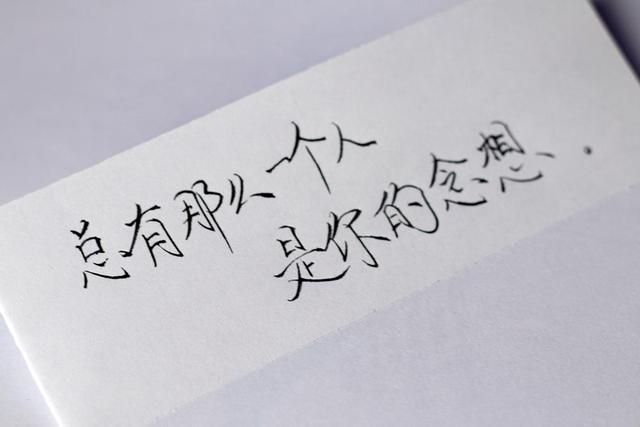 总有那么一个人
是你的念想.